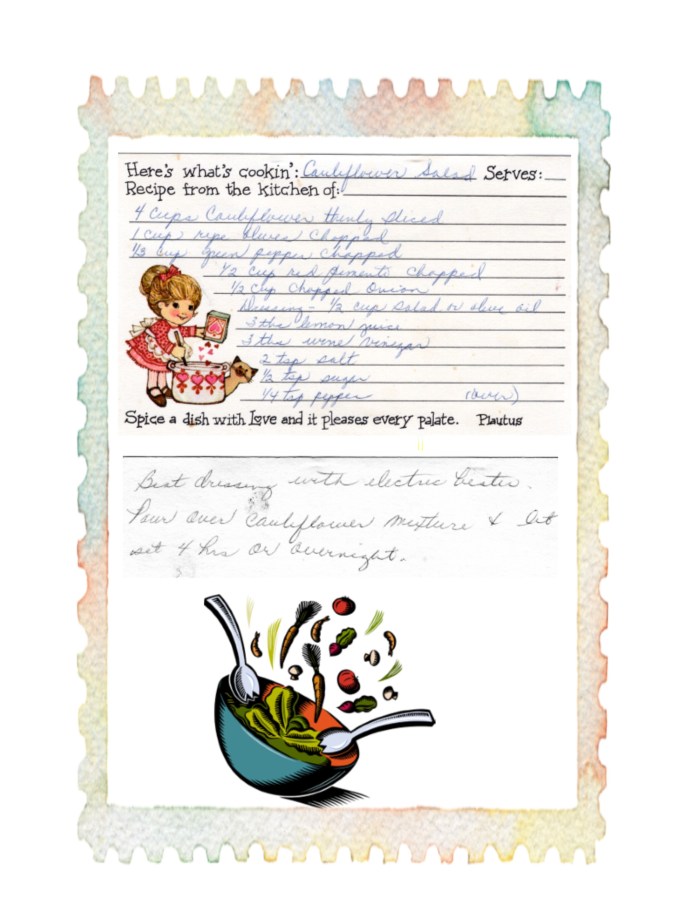 Here's what's cookin': Cauliflower Salad Serves:
Recipe from the kitchen of:
4 cups Cauliflower thinly sliced
1 cup ripe olives chopped
1/3 cup green pepper chopped
1/2 cup red pimento chopped
1/2 cup chopped onion
Dressing - 1/2 cup salad or olive oil
3 tbs lemon juice
3 tbs wine vinegar
2 tsp salt
1/2 tsp sugar
1/4 tsp pepper (over)
Spice a dish with Love and it pleases every palate. Plautus
Beat dressing with electric beater.
Pour over cauliflower mixture & let
set 4 hrs or overnight.